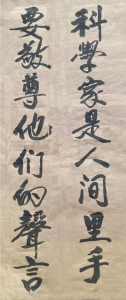 科學家是人间里手
要敬尊他们的聲言